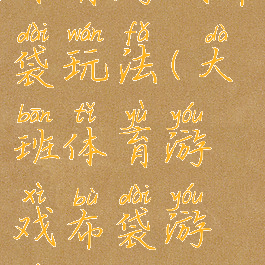 dài wán fǎ dà
袋玩法(大
bān tǐ yù yóu
班体育游
xì bù dài yóu
戏布袋游